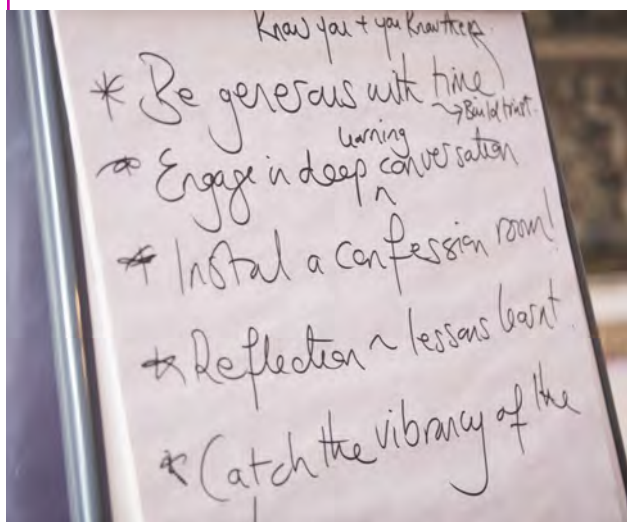 Know you + you Know them
* Be generous with time
~> Build trust.
learning
* Engage in deep conversation
* Instal a confession room!
* Reflection ~ lessons learnt.
* Catch the vibrancy of the